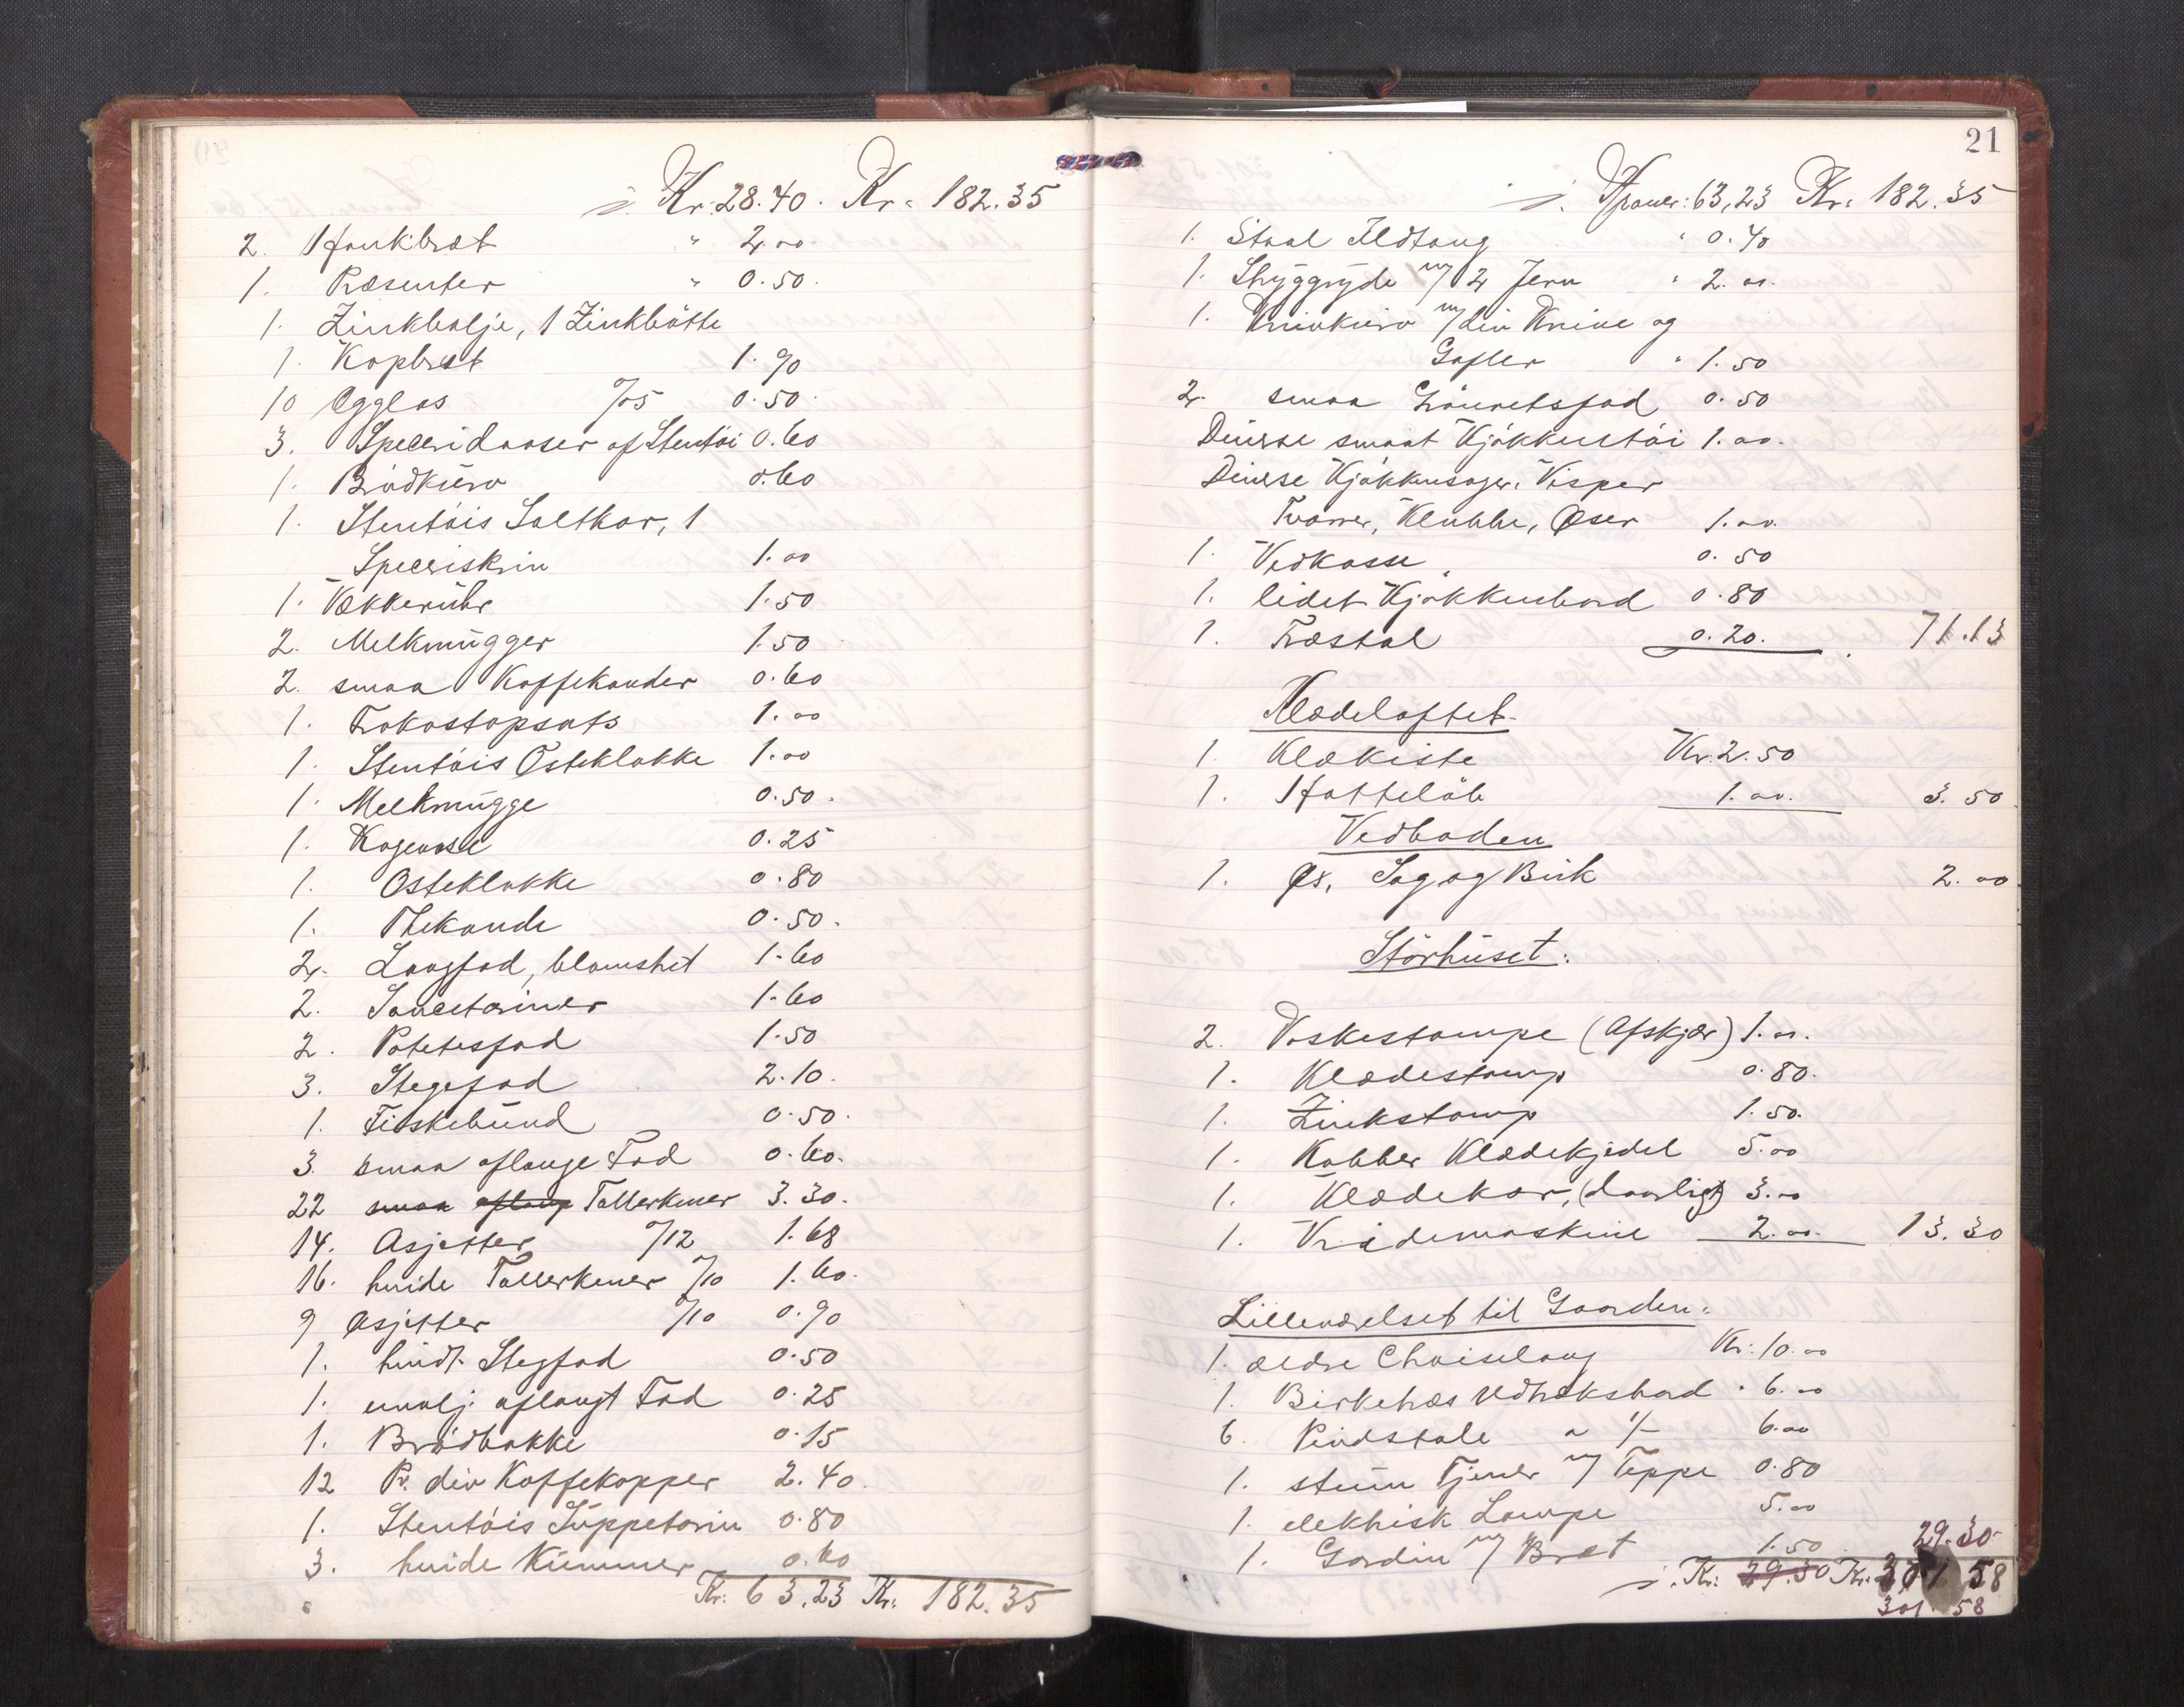 Kr. 28.40. Kr. 182.35
2. Hankbræt " 2.00
1. Præsenter " 0.50.
1. Zinkbalje, 1 Zinkbötte
1. Kopbræt 1.90
10 Ægglas %05 0.50
3. Speceridaaser af Stentöi 0.60
1. Brödkurv 0.60
1. Stentöis Saltkar, 1
Speceriskrin 1.00
1. Vækkeruhr 1.50
2. Melkmugger 1.50
2. smaa Kaffekander 0.60
1. Frokostopsats 1.00
1. Stentöis Osteklokke 1.00
1. Melkmugge 0.50.
1. Kagevase 0.25
1. Osteklokke 0.80
1. Thekande 0.50.
2. Langfad, blomstret 1.60
2. Saucetoriner 1.60
2. Potetesfad 1.50
3. Stegefad 2.10.
1. Fiskebund 0.50.
3. smaa aflange Fad 0.60.
22 smaa aflang Tallerkener 3.30.
14. Asjetter %12 1.68
16. hvide Tallerkener %10 1.60.
9 Asjetter %10 0.90
1. hvidt Stegfad 0.50
1. emalj. aflangt Fad 0.25
1. Brödbakke 0.15
12 Pr. div Kaffekopper 2.40
1. Stentöis Suppetorin 0.80
3. hvide Kummer 0.60
Kr: 63.23 Kr: 182.35
21
Kroner: 63,23 Kr. 182.35
1. Staal Ildtang " 0.40
1. Stryggryde m/ 2 Jern " 2.00.
1. Knivkurv m/ div Knive og
Gafler " 1.50
2. smaa Grönnetsfad 0.50
Diverse smaat Kjökkentöi 1.00.
Diverse Kjökkensager. Visper
Tvarer, Klubbe, Öser 1.00.
1. Vedkasse 0.50
1. lidet Kjökkenbord 0.80
1. Træstol 0.20. 71.13
Klædeloftet.
1 Klækiste Kr. 2.50
1. Hatteløb 1.00. 3.50
Vedboden
1. Øx, Sag og Buk 2.00
Störhuset:
2. Vaskestampe (Afskjær) 1.00.
1. Klædestamp 0.80.
1. Zinkstamp 1.50.
1. Kobber Klædekjedel 5.00
1. Klædekar, (daarligt) 3.00
1. Vridemaskine 2.00. 13.30
Lilleværelset til Gaarden:
1. ældre Chaiselong Kr. 10.00
1. Birketræs Udtræksbord " 6.00
6. Pindstole a 1/- 6.00
1. stum Tjener m/ Teppe 0.80
1. elektrisk Lampe 5.00
1. Gardin m/ Bræt 1.50 29.30
Kr: 29.30 Kr. 301 58
301 58